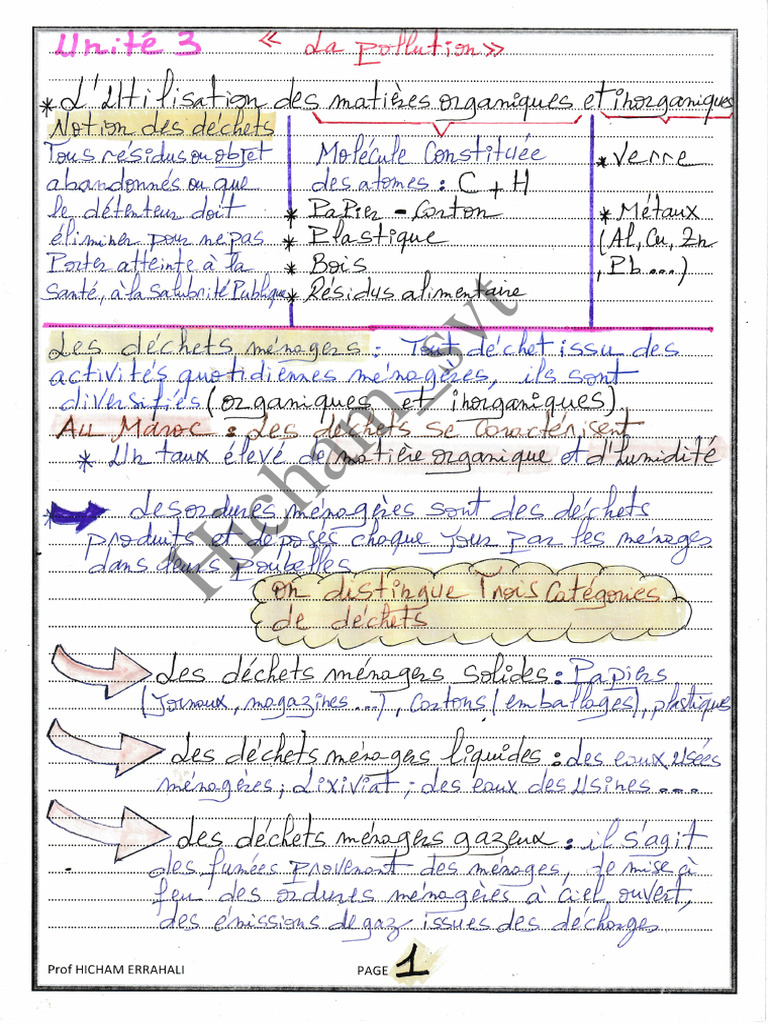 Unité 3 « La pollution »
* L'Utilisation des matières organiques et inorganiques
Notion des déchets
Tous résidus ou objet
abandonnés ou que
le détenteur doit
éliminer pour ne pas
Porter atteinte à la
Santé, à la salubrité Publique
Molécule Constituée
des atomes : C + H
* Papier - Carton
* Plastique
* Bois
* Résidus alimentaire
* Verre
* Métaux
(Al, Cu, Zn
, Pb....)
Les déchets ménagers : Tout déchet issu des
activités quotidiennes ménagères, ils sont
diversifiés (organiques et inorganiques)
Au Maroc : Les déchets se Caractérisent
* Un taux élevé de matière organique et d'humidité
* Les ordures ménagères sont des déchets
produits et déposés chaque jour par les ménages
dans leurs poubelles
on distingue Trois Catégories
de déchets
Les déchets ménagers solides : Papiers
(Jornaux, magazines....), Cartons (emballages), plastiques
Les déchets ménagers liquides : des eaux Usées
ménagères; Lixiviat; des eaux des Usines....
Les déchets ménagers gazeux : il s'agit
des fumées provenant des ménages, de mise à
feu des ordures ménagères à ciel ouvert,
des émissions de gaz issues des décharges
Hicham_svt
Prof HICHAM ERRAHALI PAGE 1